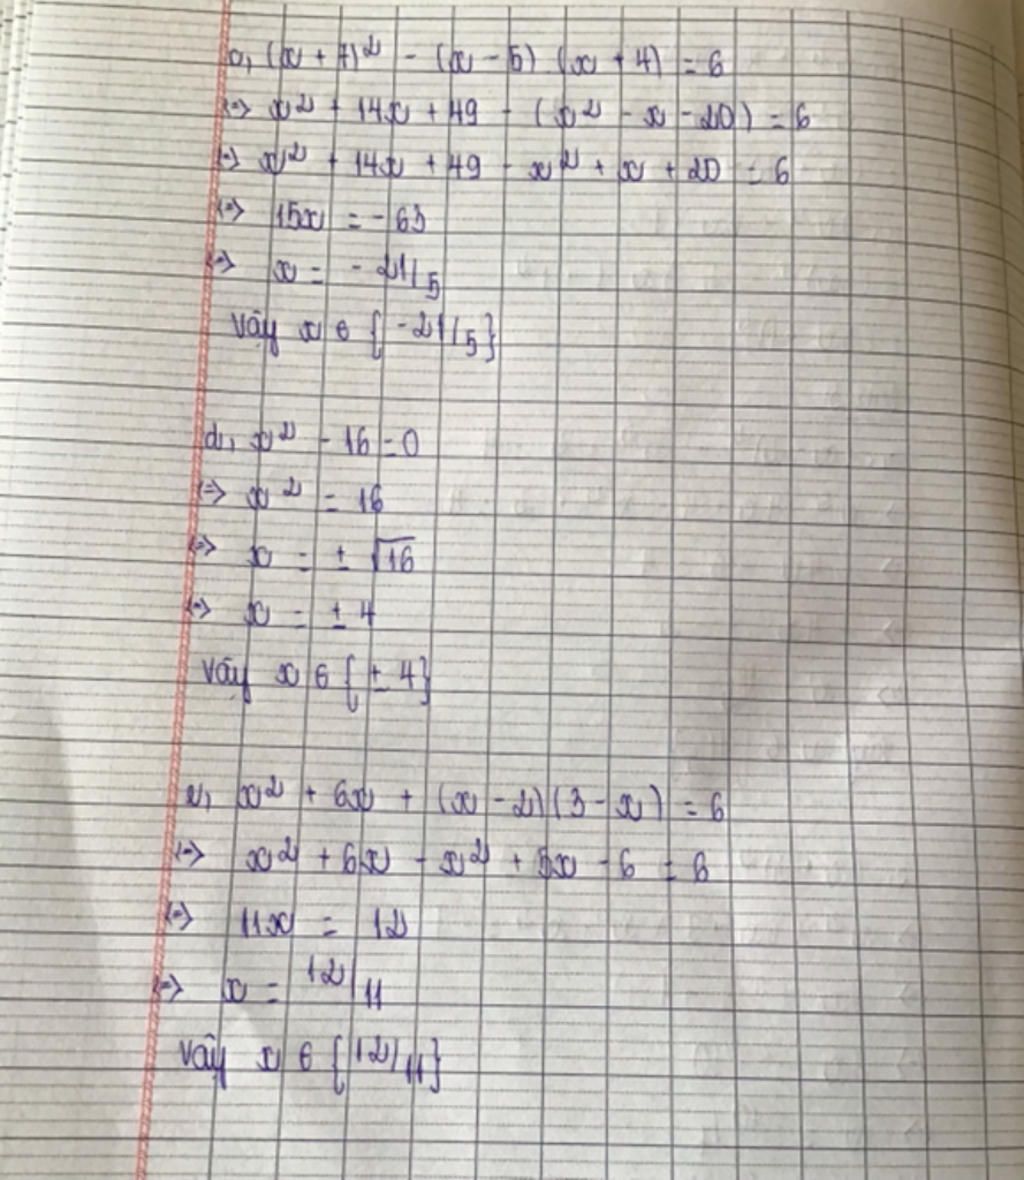 c, (x + 7)² - (x - 5) (x + 4) = 6
<=> x² + 14x + 49 - (x² - x - 20) = 6
<=> x² + 14x + 49 - x² + x + 20 = 6
<=> 15x = -63
<=> x = -21/5
Vậy x ∈ {-21/5}
d, x² - 16 = 0
<=> x² = 16
<=> x = ± √16
<=> x = ± 4
Vậy x ∈ {± 4}
e, x² + 6x + (x - 2)(3 - x) = 6
<=> x² + 6x - x² + 5x - 6 = 6
<=> 11x = 12
<=> x = 12/11
Vậy x ∈ {12/11}